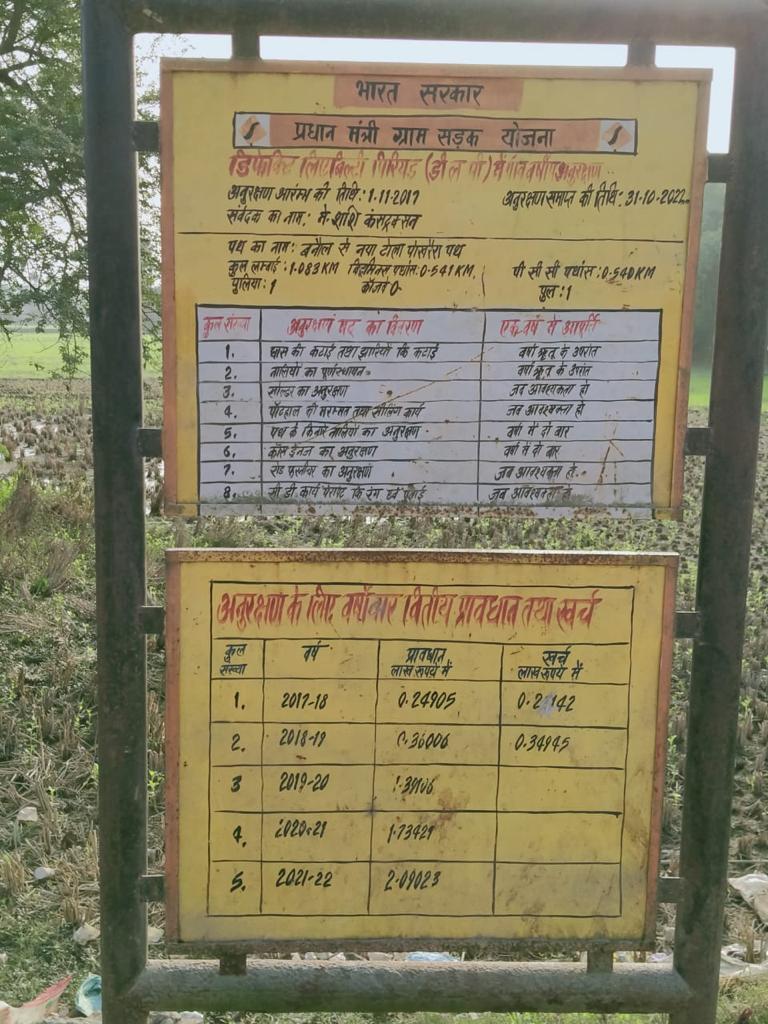 भारत सरकार
प्रधान मंत्री ग्राम सड़क योजना
डिफेक्ट लिएबिल्टी पिरियड (डी ल पी) में पांच वर्षीय अनुरक्षण
अनुरक्षण आरम्भ की तिथि: 1.11.2017 अनुरक्षण समाप्त की तिथि: 31-10-2022
संवेदक का नाम: मे० शशि कंसट्रक्सन
पथ का नाम: बनौल से नया टोला पोखरैरा पथ
कुल लम्बाई: 1.083KM बिटुमिनस पथांस: 0.541KM पी सी सी पथांस: 0.540KM
पुलिया: 1 कॉजवे 0 पुल: 1
कुल संख्या अनुरक्षण मद का विवरण एक वर्ष में आवृत्ति
1. घास की कटाई तथा झारियों कि कटाई वर्षा ऋतु के उपरांत
2. नालियों का पुर्णस्थापन वर्षा ऋतु के उपरांत
3. सोल्डर का अनुरक्षण जब आवश्यकता हो
4. पॉटहाल की मरम्मत तथा सीलिंग कार्य जब आवश्यकता हो
5. पथ के किनारे नालियों का अनुरक्षण वर्ष में दो बार
6. क्रॉस ड्रेनज का अनुरक्षण वर्ष में दो बार
7. रोड फरनीचर का अनुरक्षण जब आवश्यकता हो
8. सी डी कार्य पैरापेट कि रंग एवं पुताई जब आवश्यकता हो
अनुरक्षण के लिए वर्षवार वितीय प्रावधान तथा खर्च
कुल संख्या वर्ष प्रावधान लाख रूपये में खर्च लाख रूपये में
1. 2017-18 0.24905
2. 2018-19 0.36006 0.34945
3 2019-20
4. 2020-21 1.73429
5. 2021-22 2.09023